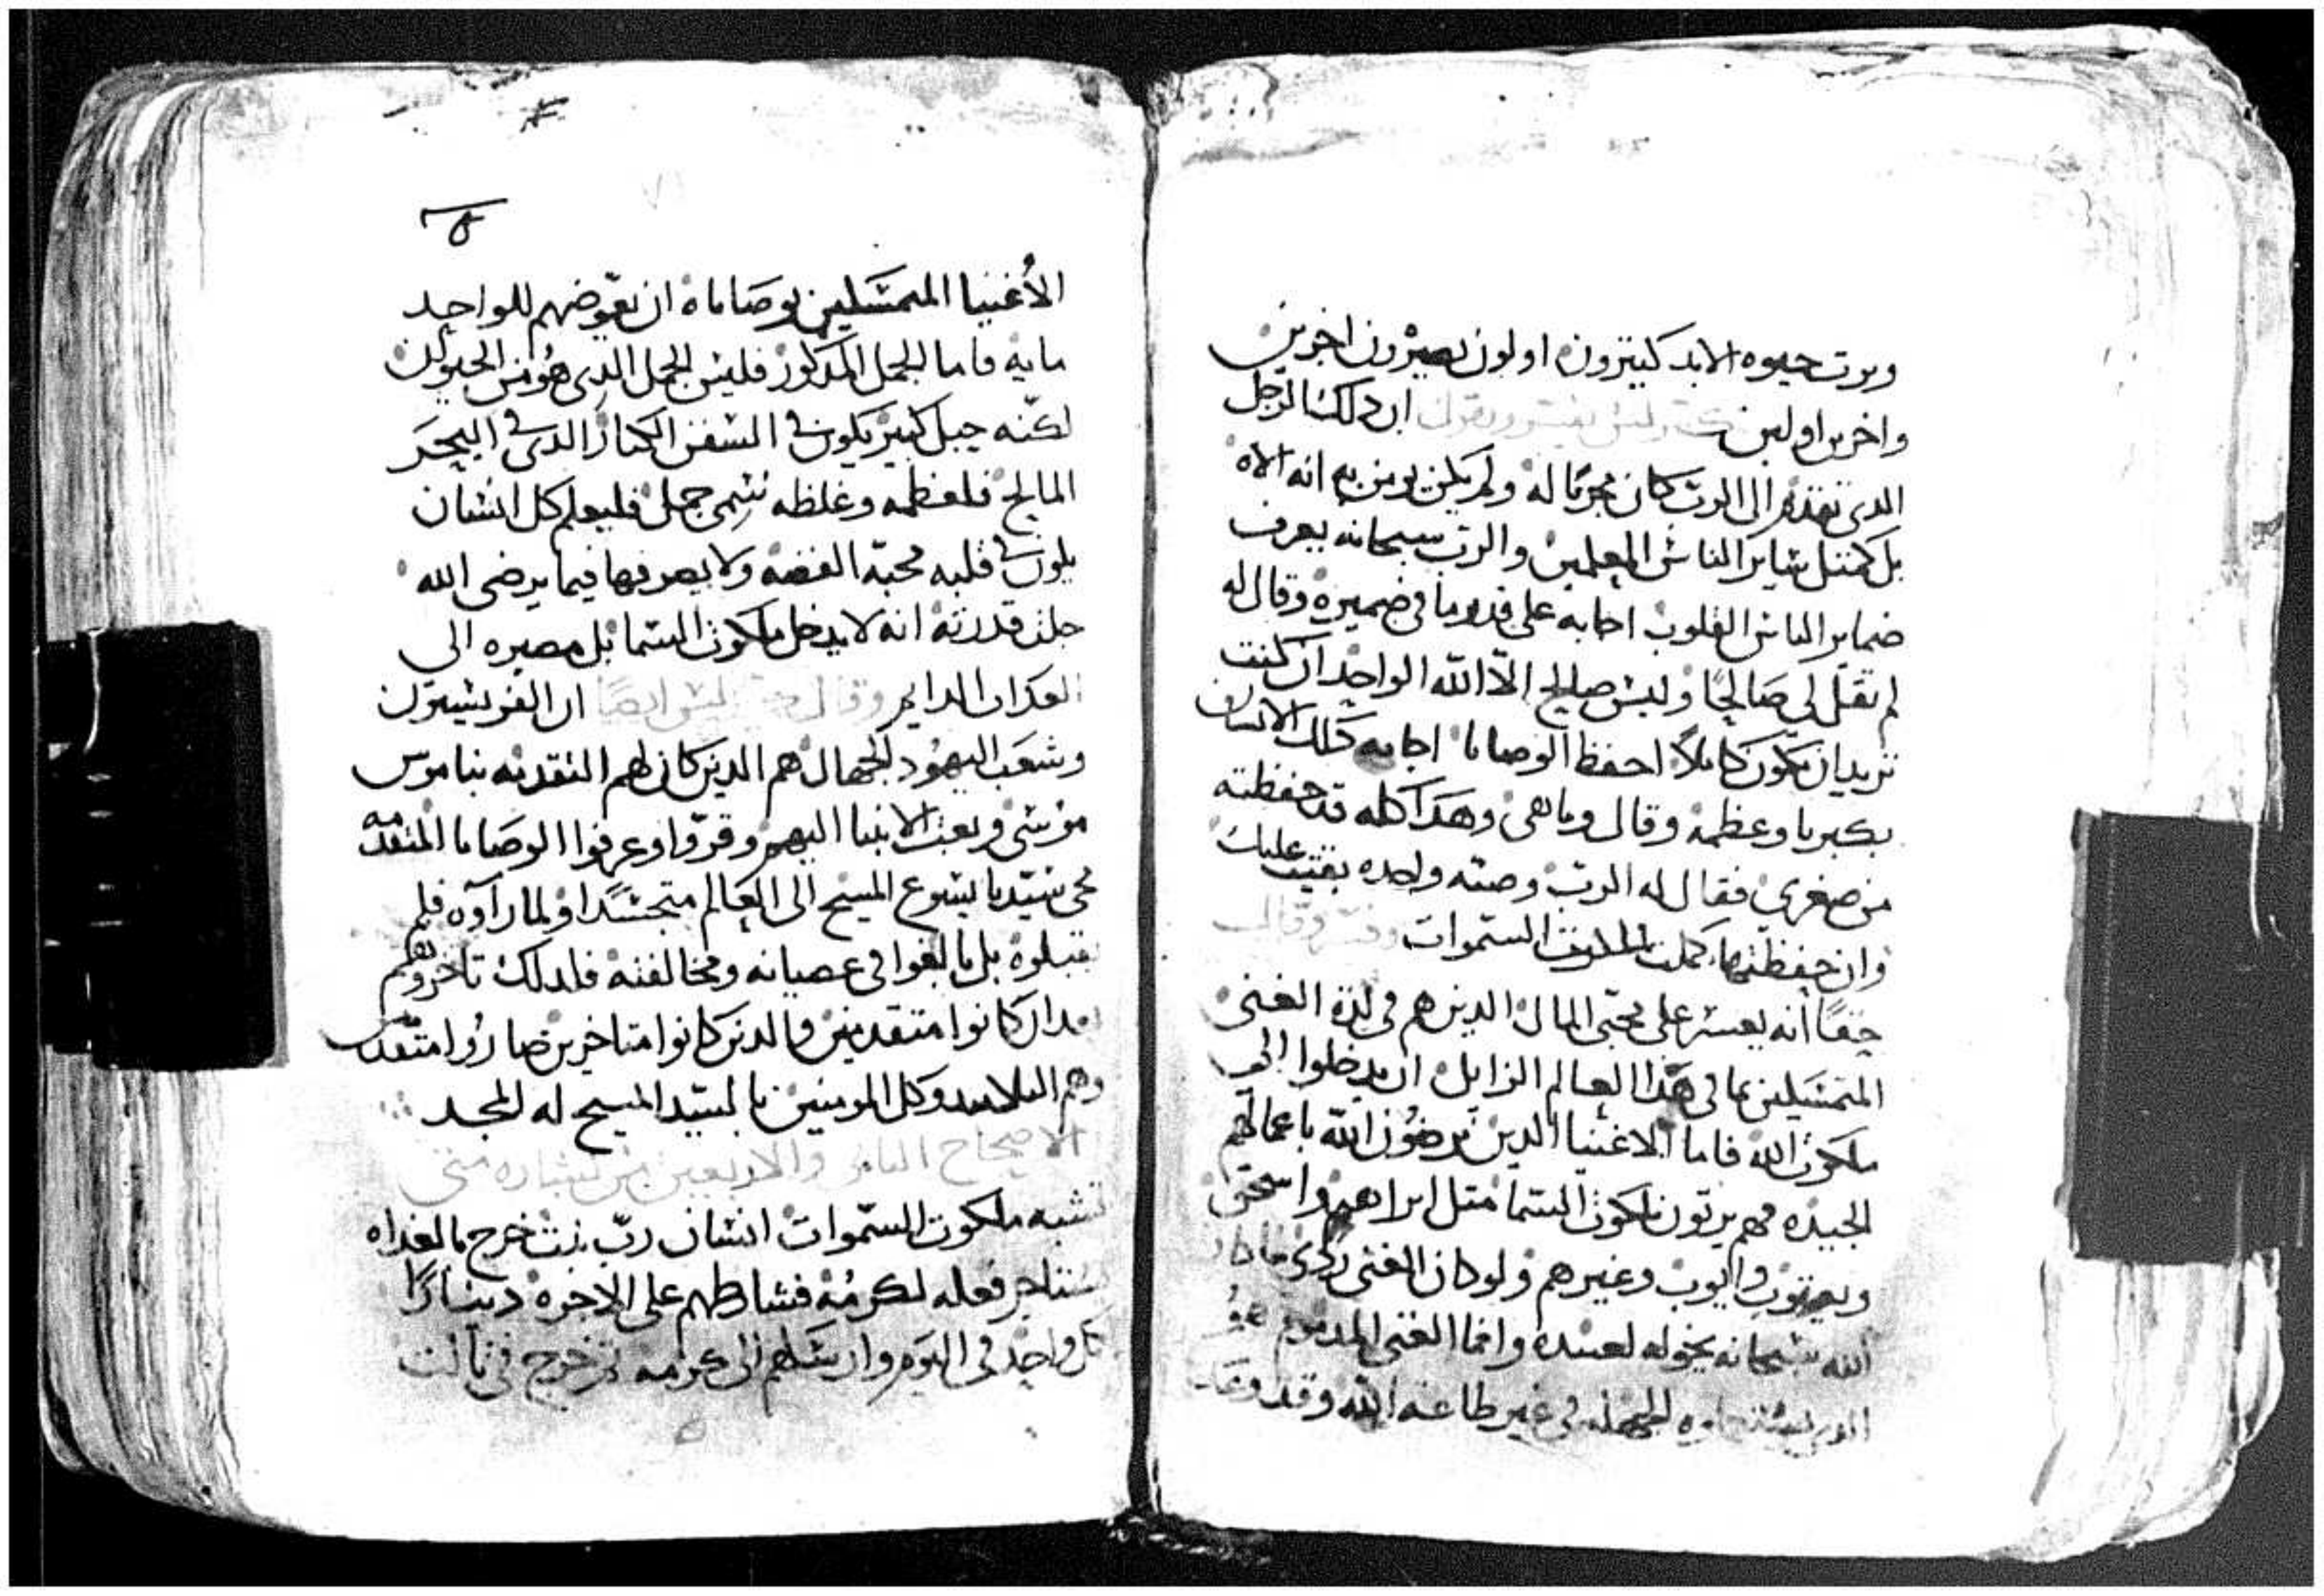 ويرت حيوه الابد كتيرون اولون يصيرون اخرين
واخرين اولين ان دلك الرجل
الدى تقدم الى الرب كان مجربا له ولم يكن يومن به انه الاه
بل كمتل ساير الناس المعلمين والرب سبحانه يعرف
ضماير الناس القلوب اجابه على قدر ما فى ضميره وقال له
لم تقل لى صالحا وليس صالح الا الله الواحد ان كنت
تريد ان تكون كاملا احفظ الوصايا اجابه دلك الانسان
بكبريا وعظمه وقال وما هى وهدا كله قد حفظته
من صغرى فقال له الرب وصيه واحده بقيت عليك
وان حفظتها كملت السموات وفسر وقال
حقا انه يعسر على محبى المال الدين هم فى لدة الغنى
المتمسكين بما فى هدا العالم الزايل ان يدخلوا الى
ملكوت الله فاما الاغنيا الدين يرضون الله باعمالهم
الجيده فهم يرتون ملكوت السما متل ابراهيم واسحق
ويعقوب وايوب وغيرهم ولو كان الغنى ردى ما كان
الله سبحانه يخوله لعبيده وانما الغنى المدموم هو
الدى الجهله فى غير طاعة الله وقد وعد
الأغنيا المتمسكين بوصاياه ان يعوضهم للواحد
مايه فاما الجمل المدكور فليس الجمل الدى هو من الحيوان
لكنه حبل كبير يكون فى السفن الكبار الدى فى البحر
المالح فلعظمه وغلظه سمى جمل فليعلم كل انسان
يكون فى قلبه محبة الفضه ولا يصرفها فيما يرضى الله
جلت قدرته انه لا يدخل ملكوت السما بل مصيره الى
العداب الدايم وقال ايضا ان الفريسيون
وشعب اليهود الجهال هم الدين كان لهم التقدمه بناموس
موسى وبعث الانبيا اليهم وقروا وعرفوا الوصايا المتقدمه
مجى سيدنا يسوع المسيح الى العالم متجسدا ولما راوه فلم
يقبلوه بل بالغوا فى عصيانه ومخالفته فلدلك تاخروا هم
بعد ان كانوا متقدمين والدين كانوا متاخرين صاروا متقدمين
وهم التلاميد وكل المومنين بالسيد المسيح له المجد
الاصحاح والاربعين من بشاره متى
تشبه ملكوت السموات انسان رب بيت خرج بالغداه
يستاجر فعله لكرمه فشارطهم على الاجره دينارا
كل واحد فى اليوم وارسلهم الى كرمه تم خرج فى تالت